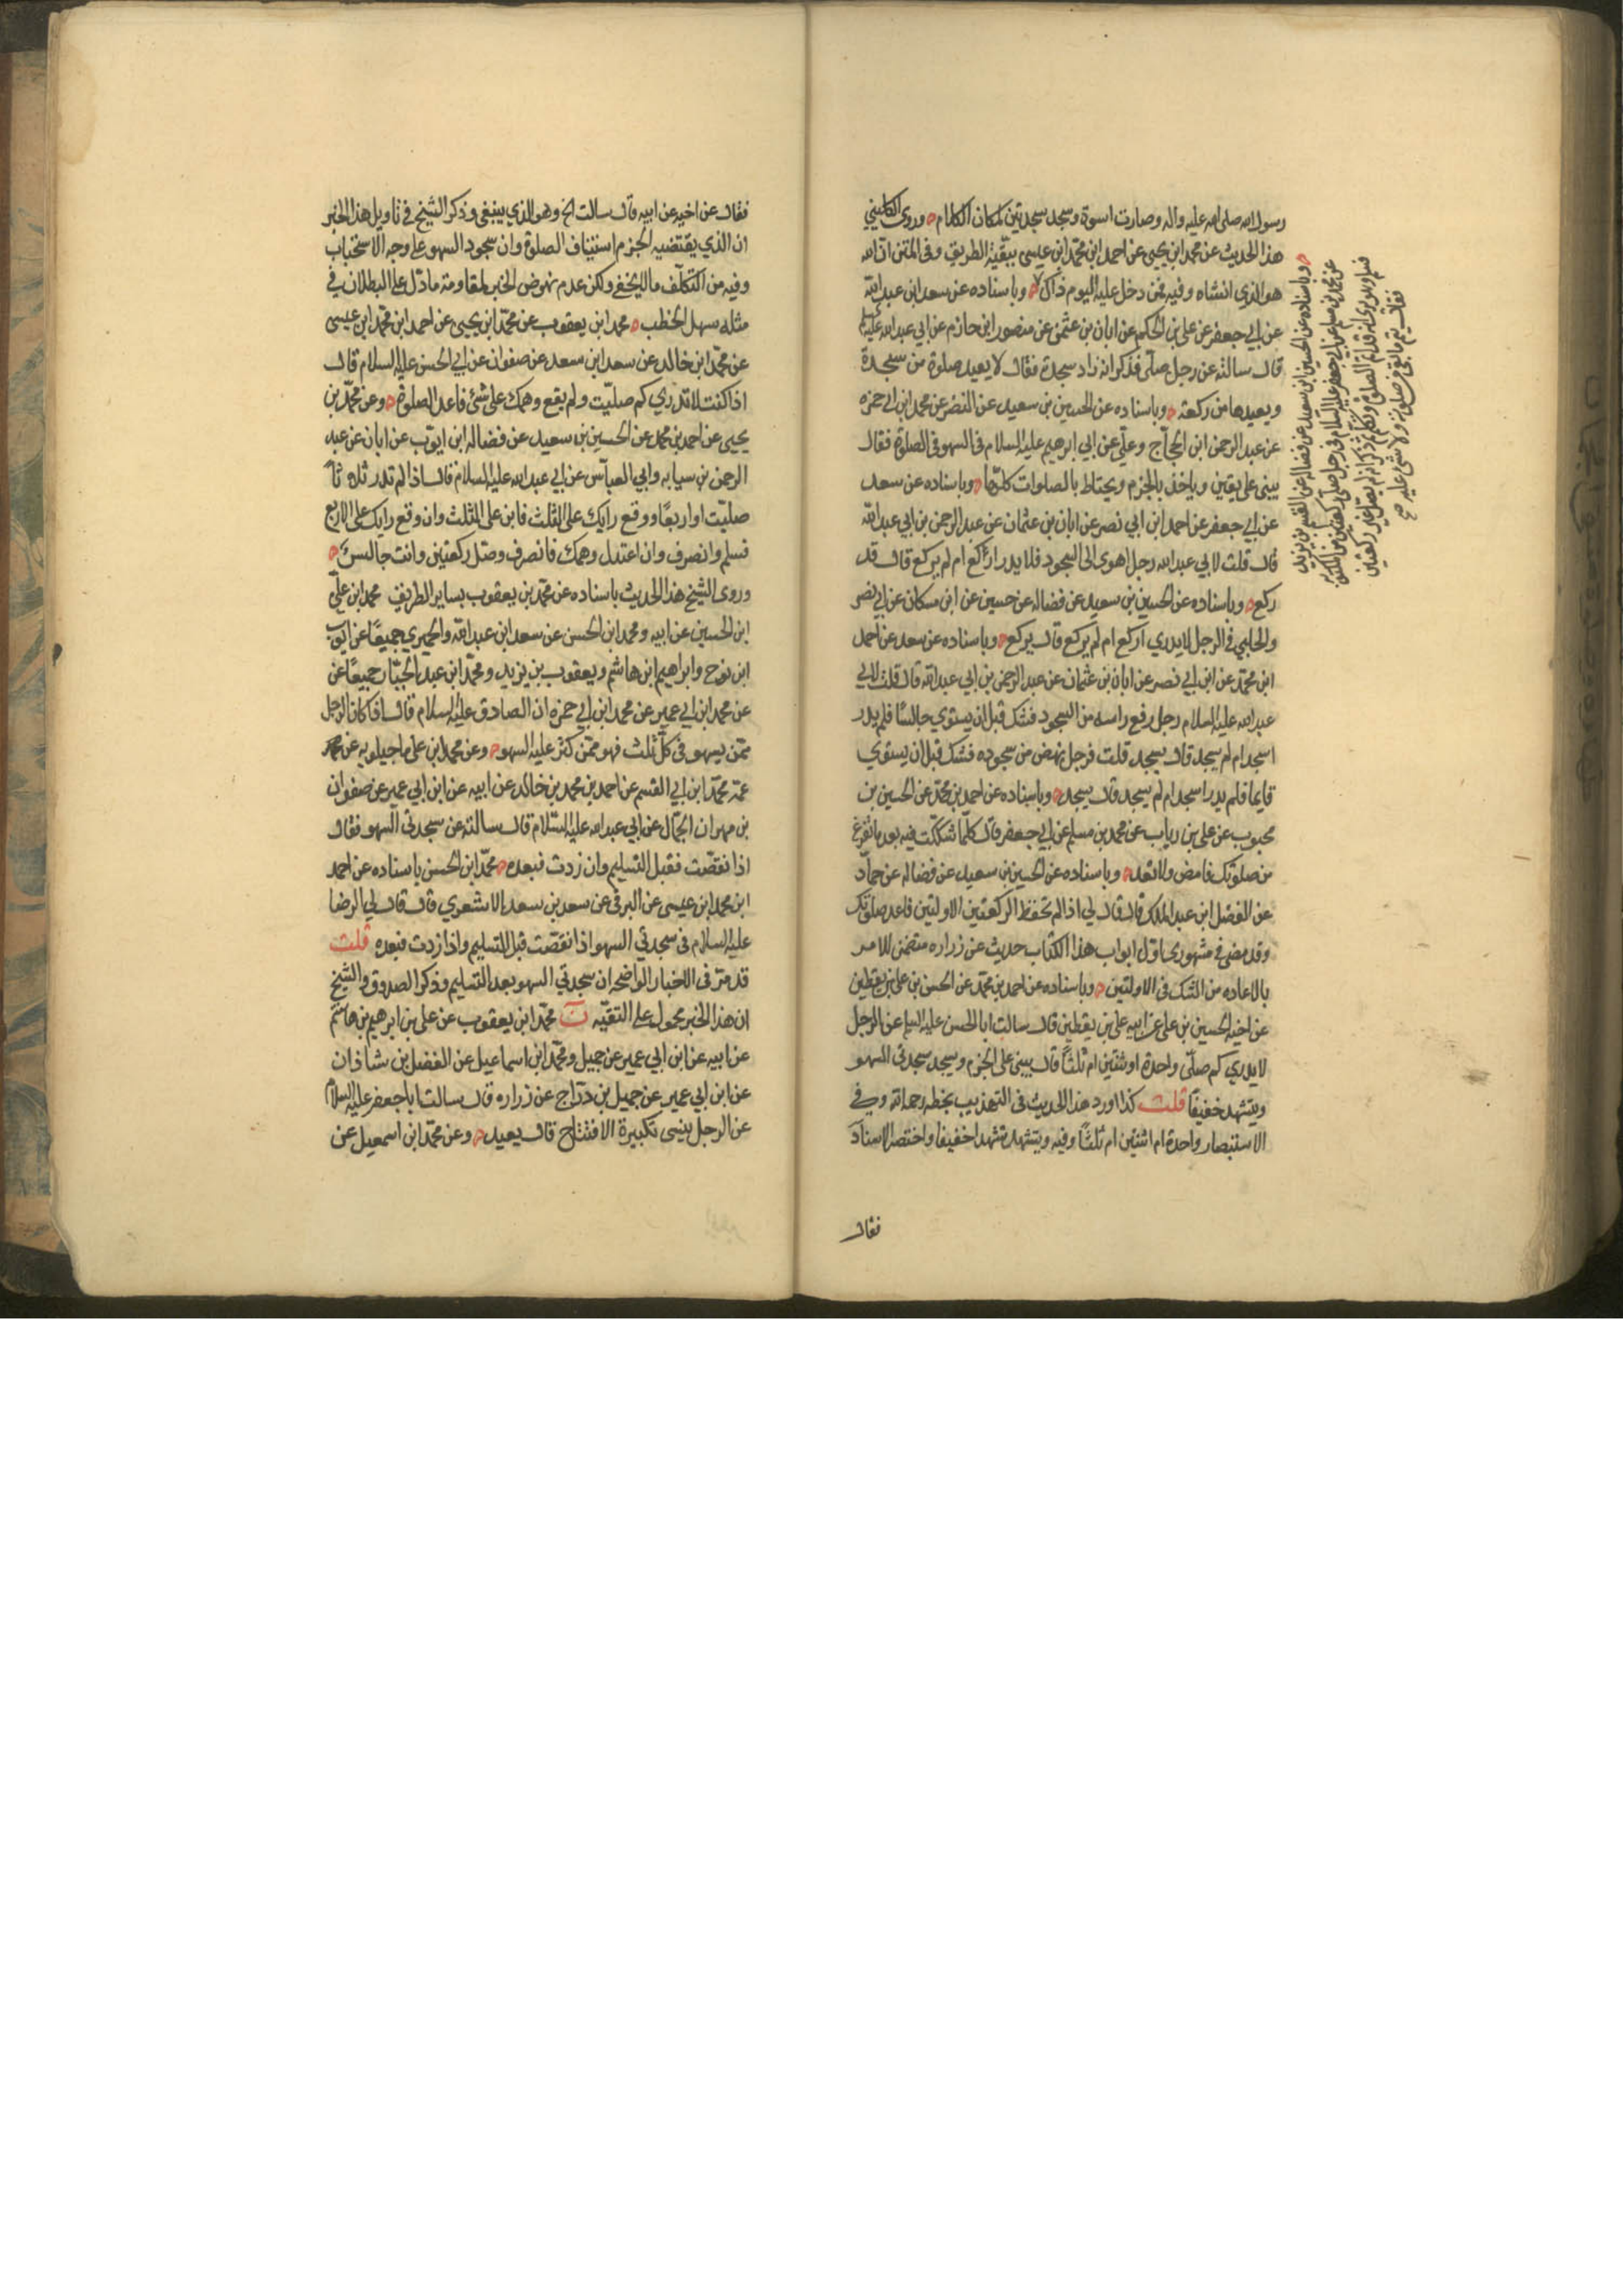 رسول الله صلى الله عليه واله وصارت اسوة وسجد سجدتين لمكان الكلام وروى الكليني
هذا الحديث عن محمد ابن يحيى عن احمد ابن محمد ابن عيسى ببقية الطريق وفى المتن ان الله
هو الذي انساه وفيه فمن دخل عليه اليوم ذاك وباسناده عن سعد ابن عبد الله
عن ابي جعفر عن علي بن الحكم عن ابان بن عثمن عن منصور ابن حازم عن ابي عبد الله عليه السلم
قال سالته عن رجل صلى فذكر انه زاد سجدة فقال لا يعيد صلوة من سجدة
ويعيدها من ركعة وباسناده عن الحسين بن سعيد عن النضر عن محمد ابن ابي حمزه
عن عبد الرحمن ابن الحجاج وعلي عن ابي ابرهيم عليه السلام فى السهو فى الصلوة فقال
يبنى على يقين وياخذ بالجزم ويحتاط بالصلوات كلها وباسناده عن سعد
عن ابي جعفر عن احمد ابن ابي نصر عن ابان بن عثمان عن عبد الرحمن بن ابي عبد الله
قال قلت لابي عبد الله رجل اهوى الى السجود فلا يدر اركع ام لم يركع قال قد
ركع وباسناده عن الحسين بن سعيد عن فضاله عن حسين عن ابن مسكان عن ابي بصر
والحلبي فى الرجل لا يدري اركع ام لم يركع قال يركع وباسناده عن سعد عن احمد
ابن محمد عن ابن ابي نصر عن ابان بن عثمان عن عبد الرحمن بن ابي عبد الله قال قلت لابي
عبد الله عليه السلام رجل رفع راسه من السجود فشك قبل ان يستوي جالسا فلم يدر
اسجد ام لم يسجد قال يسجد قلت فرجل نهض من سجوده فشك قبل ان يستوي
قايما فلم يدر اسجد ام لم يسجد قال يسجد وباسناده عن احمد بن محمد عن الحسين بن
محبوب عن على بن رياب عن محمد بن مسلم عن ابي جعفر قال كلما شككت فيه بعد ما تفرغ
من صلوتك فامض ولا تعد وباسناده عن الحسين بن سعيد عن فضاله عن حماد
عن الفضل ابن عبد الملك قال قال لي اذا لم تحفظ الركعتين الاولتين فاعد صلوتك
وقد مضى فى مشهوري اول ابواب هذا الكتاب حديث عن زراره متضمن للامر
بالاعاده من الشك فى الاولتين وباسناده عن احمد بن محمد عن الحسن بن على بن يقطين
عن اخيه الحسين بن على عن ابيه على بن يقطين قال سالت ابا الحسن عليه السلم عن الرجل
لا يدري كم صلى واحدة او ثنتين ام ثلثا قال يبنى على الجزم ويسجد سجدتى السهو
ويتشهد خفيفا قلت كذا اورد هذا الحديث فى التهذيب بخطه رحمه الله وفى
الاستبصار واحدة ام اثنتين ام ثلثا وفيه ويتشهد تشهدا خفيفا واختصر الاسناد
فقال
وباسناده عن الحسين ابن سعيد عن فضاله عن القسم بن بريد
عن محمد بن مسلم عن ابي جعفر عليه السلام فى رجل صلى ركعتين من المكتوبه
فسلم وهو يرى انه قد اتم الصلوة وتكلم ثم ذكر انه لم يصل غير ركعتين
فقال يتم ما بقى من صلوته ولا شئ عليه صح
فقال عن اخيه عن ابيه قال سالت الخ وهو الذي ينبغى وذكر الشيخ فى تاويل هذا الخبر
ان الذي يقتضيه الجزم استيناف الصلوة وان سجود السهو على وجه الاستحباب
وفيه من التكلف ما لا يخفى ولكن عدم نهوض الخبر لمقاومة ما دل على البطلان فى
مثله سهل الخطب محمد ابن يعقوب عن محمد ابن يحيى عن احمد ابن محمد ابن عيسى
عن محمد ابن خالد عن سعد ابن سعد عن صفوان عن ابي الحسن عليه السلام قال
اذا كنت لا تدري كم صليت ولم يقع وهمك على شئ فاعد الصلوة وعن محمد بن
يحيى عن احمد بن محمد عن الحسين بن سعيد عن فضاله ابن ايوب عن ابان عن عبد
الرحمن بن سيابه وابي العباس عن ابي عبد الله عليه السلام قال اذا لم تدر ثلاثا
صليت او اربعا ووقع رايك على الثلث فابن على الثلث وان وقع رايك على الاربع
فسلم وانصرف وان اعتدل وهمك فانصرف وصل ركعتين وانت جالس
وروى الشيخ هذا الحديث باسناده عن محمد بن يعقوب بساير الطريق محمد ابن علي
ابن الحسين عن ابيه ومحمد ابن الحسن عن سعد ابن عبد الله والحميري جميعا عن ايوب
ابن نوح وابراهيم ابن هاشم ويعقوب بن يزيد ومحمد ابن عبد الجبار جميعا عن
عن محمد ابن ابي عمير عن محمد ابن ابي حمزه ان الصادق عليه السلام قال اذا كان الرجل
ممن يسهو فى كل ثلث فهو ممن كثر عليه السهو وعن محمد ابن على ماجيلويه عن
عمه محمد ابن ابي القسم عن احمد بن محمد بن خالد عن ابيه عن ابن ابي عمير عن صفوان
بن مهران الجمال عن ابي عبد الله عليه السلام قال سالته عن سجدتى السهو فقال
اذا نقصت فقبل التسليم وان زدت فبعده محمد ابن الحسن باسناده عن احمد
ابن محمد ابن عيسى عن البرقى عن سعد بن سعد الاشعري قال قال لي الرضا
عليه السلام فى سجدتي السهو اذا نقصت قبل التسليم واذا زدت فبعده قلت
قد مر فى الاخبار الواضحه ان سجدتي السهو بعد التسليم وذكر الصدوق والشيخ
ان هذا الخبر محمول على التقيه ن محمد ابن يعقوب عن على بن ابرهيم بن هاشم
عن ابيه عن ابن ابي عمير عن جميل ومحمد ابن اسماعيل عن الفضل بن شاذان
عن ابن ابي عمير عن جميل بن دراج عن زراره قال سالت ابا جعفر عليه السلام
عن الرجل ينسى تكبيرة الافتتاح قال يعيد وعن محمد ابن اسمعيل عن